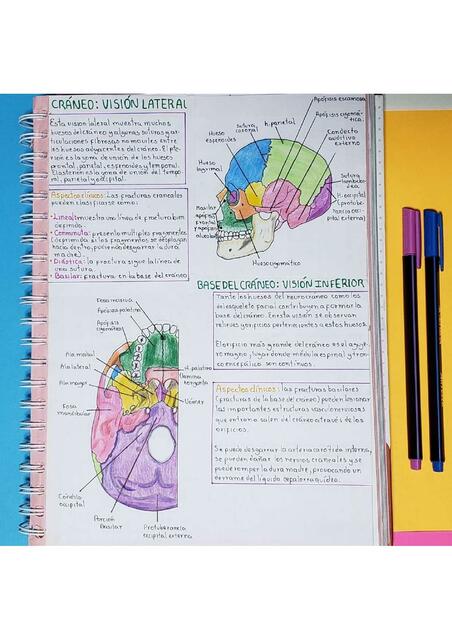 CRÁNEO: VISIÓN LATERAL
Esta visión lateral muestra muchos
huesos del cráneo y algunas suturas y ar-
ticulaciones fibrosas no móviles entre
los huesos adyacentes del cráneo. El pte-
rión es la zona de unión de los huesos
frontal, parietal, esfenoides y temporal.
El asterion es la zona de unión del tempo-
ral, parietal y occipital.
Aspectos clínicos: Las fracturas craneales
pueden clasificarse como:
• Lineal: muestra una línea de fractura bien
definida.
• Conminuta: presenta múltiples fragmentos
(deprimida si los fragmentos se desplazan
hacia dentro, pudiendo desgarrar la dura
madre).
• Diástica: la fractura sigue la línea de
una sutura.
• Basilar: fractura en la base del cráneo.
Apófisis escamosa
h. parietal
Apófisis cigomá-
tica.
Sutura
coronal
Conducto
auditivo
externo
Hueso
esfenoides
Hueso
lagrimal
Sutura
lambdoi-
dea
H. occipital
(protube-
rancia occi-
pital externa)
Maxilar
Hueso cigomático
BASE DEL CRÁNEO: VISIÓN INFERIOR
Tanto los huesos del neurocráneo como los
del esqueleto facial contribuyen a formar la
base del cráneo. En esta visión se observan
relieves y orificios pertenecientes a estos huesos.
El orificio más grande del cráneo es el aguje-
ro magno, lugar donde médula espinal y tron-
co encefálico son continuos.
Aspectos clínicos: las fracturas basilares
(fracturas de la base del cráneo) pueden lesionar
las importantes estructuras vasculonerviosas
que entran o salen del cráneo a través de los
orificios.
Se puede desgarrar la arteria carótida interna,
se pueden dañar los nervios craneales y se
puede romper la dura madre, provocando un
derrame del líquido cefalorraquídeo.
Fosa incisiva
Apófisis palatina
Apófisis
cigomática
Ala medial
Ala lateral
Ala mayor
Fosa
mandibular
H. palatino
Vómer
Cóndilo
occipital
Porción
basilar
Protuberancia
occipital externa